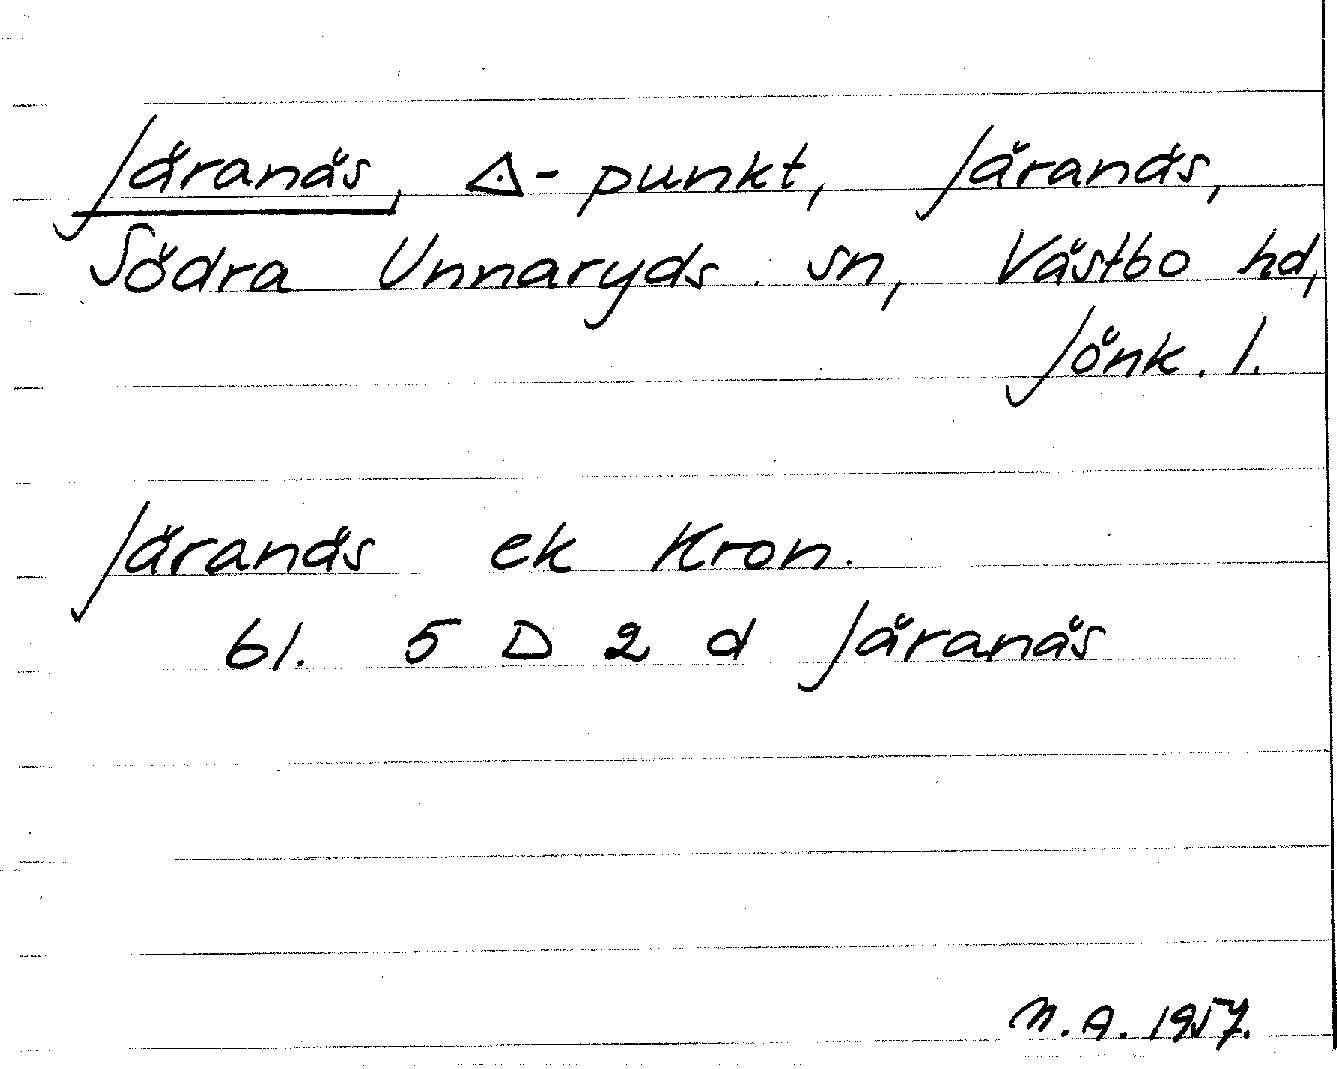 Järanäs, △-punkt, Järanäs,
Södra Unnaryds sn, Västbo hd,
Jönk. l.
Järanäs ek Kron.
bl. 5 D 2 d Järanäs
N.A. 1957.